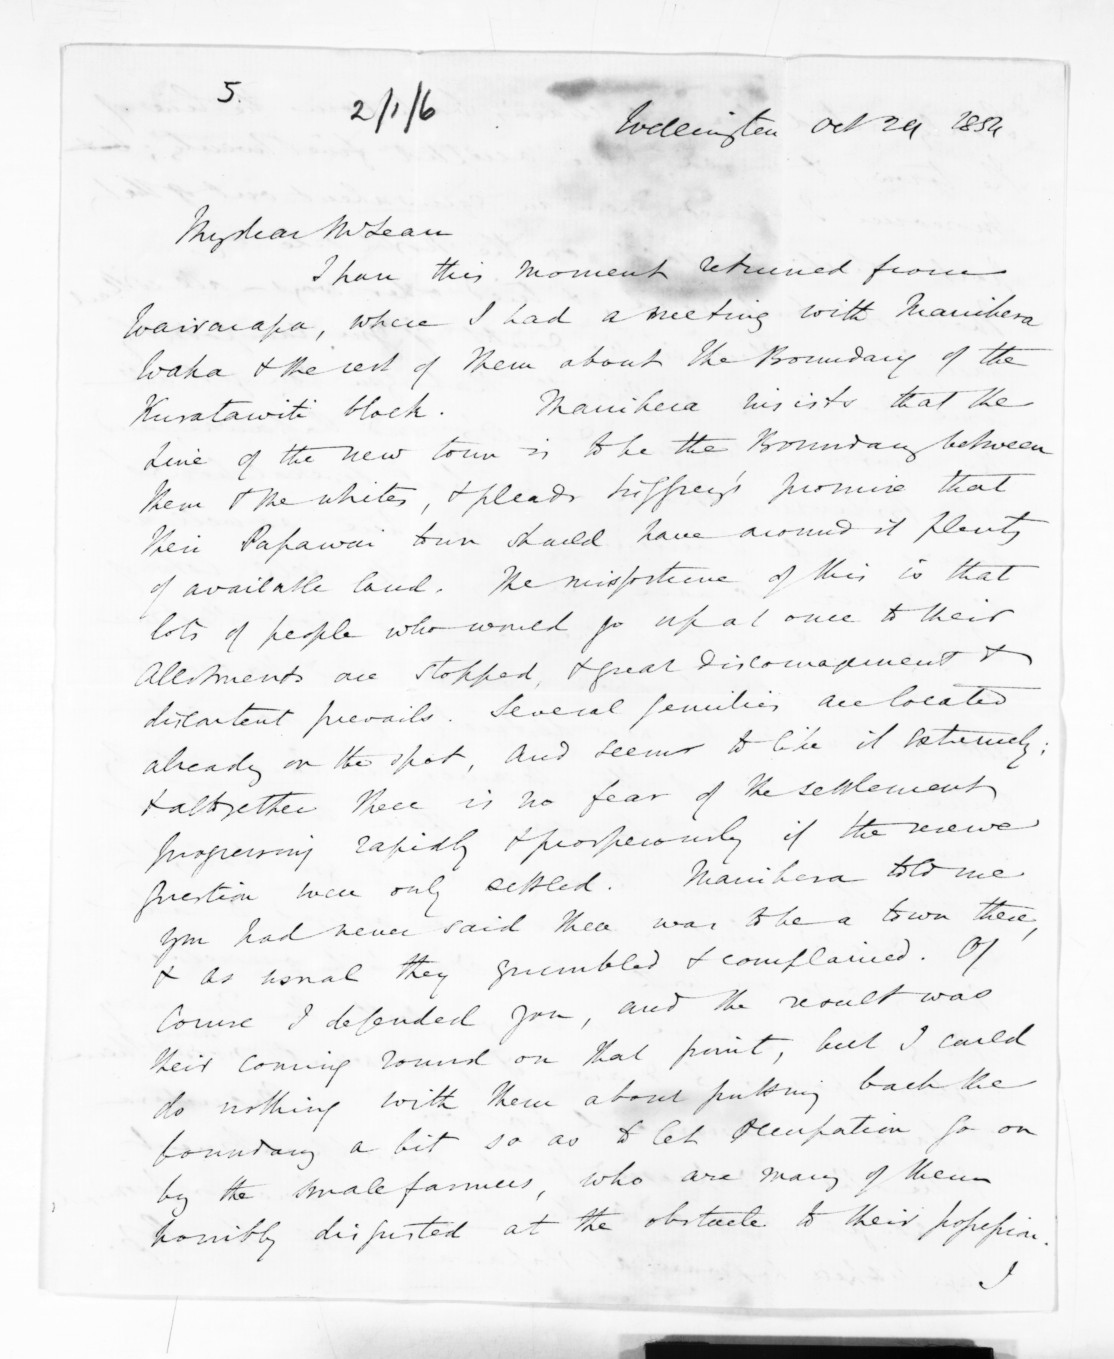 5.
2/1/6
Wellington Oct 29 1854
My dear McLean
I have this moment returned from
Wairarapa, where I had a meeting with Manihera
Waka & the rest of them about the Boundary of the
Kuratawiti block. Manihera insists that the
Line of the new town is to be the Boundary between
them & the whites, & pleads Sir Grey's promise that
their Papawai town should have around it plenty
of available land. The misfortune of this is that
lots of people who would go up at once to their
Allotments are stopped, & great discouragement &
discontent prevails. Several families are located
already on the spot, and seems to like it extremely;
& altogether there is no fear of the settlement
progressing rapidly & prosperously if the reserve
question were only settled. Manihera told me
you had never said there was to be a town there,
& as usual they grumbled & complained. Of
course I defended you, and the result was
their coming round on that point, but I could
do nothing with them about putting back the
boundary a bit so as to let Occupation go on
by the small farmers, who are many of them
horribly disgusted at the obstacle to their possession.
I